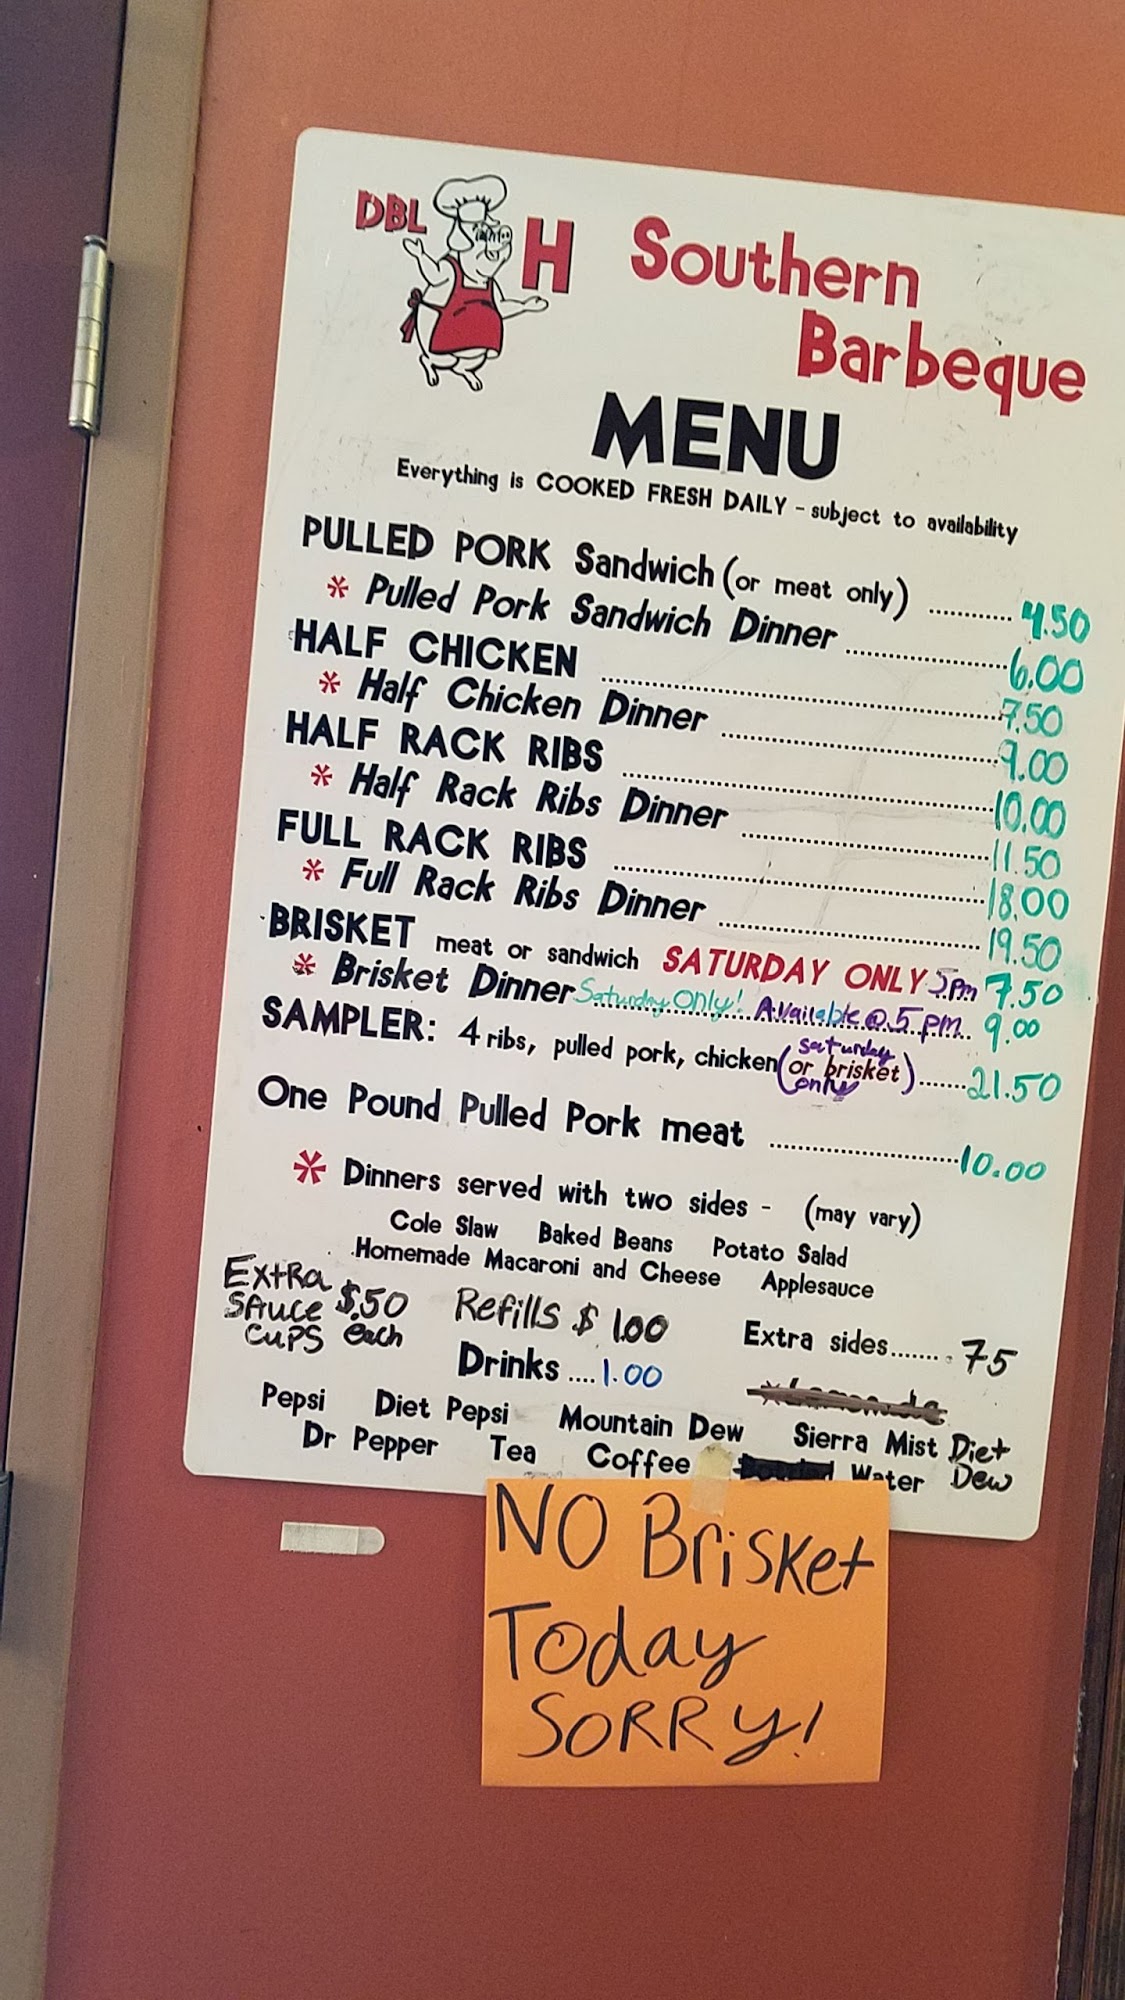 DBL H Southern
Barbeque
MENU
Everything is COOKED FRESH DAILY - subject to availability
PULLED PORK Sandwich (or meat only) ............ 4.50
* Pulled Pork Sandwich Dinner ........................ 6.00
HALF CHICKEN ............................................ 7.50
* Half Chicken Dinner .............................. 9.00
HALF RACK RIBS ........................................ 10.00
* Half Rack Ribs Dinner ............................ 11.50
FULL RACK RIBS ........................................ 18.00
* Full Rack Ribs Dinner ............................ 19.50
BRISKET meat or sandwich SATURDAY ONLY 5pm 7.50
* Brisket Dinner Saturday Only! Available @ 5 pm.. 9.00
saturday
SAMPLER: 4 ribs, pulled pork, chicken (or brisket) ....... 21.50
only
One Pound Pulled Pork meat ........................ 10.00
* Dinners served with two sides - (may vary)
Cole Slaw Baked Beans Potato Salad
Homemade Macaroni and Cheese Applesauce
Extra
Sauce $.50
Cups each
Refills $ 1.00
Extra sides....... .75
Drinks .... 1.00
Pepsi Diet Pepsi Mountain Dew Sierra Mist Diet
Dr Pepper Tea Coffee Water Dew
NO Brisket
Today
SORRY!